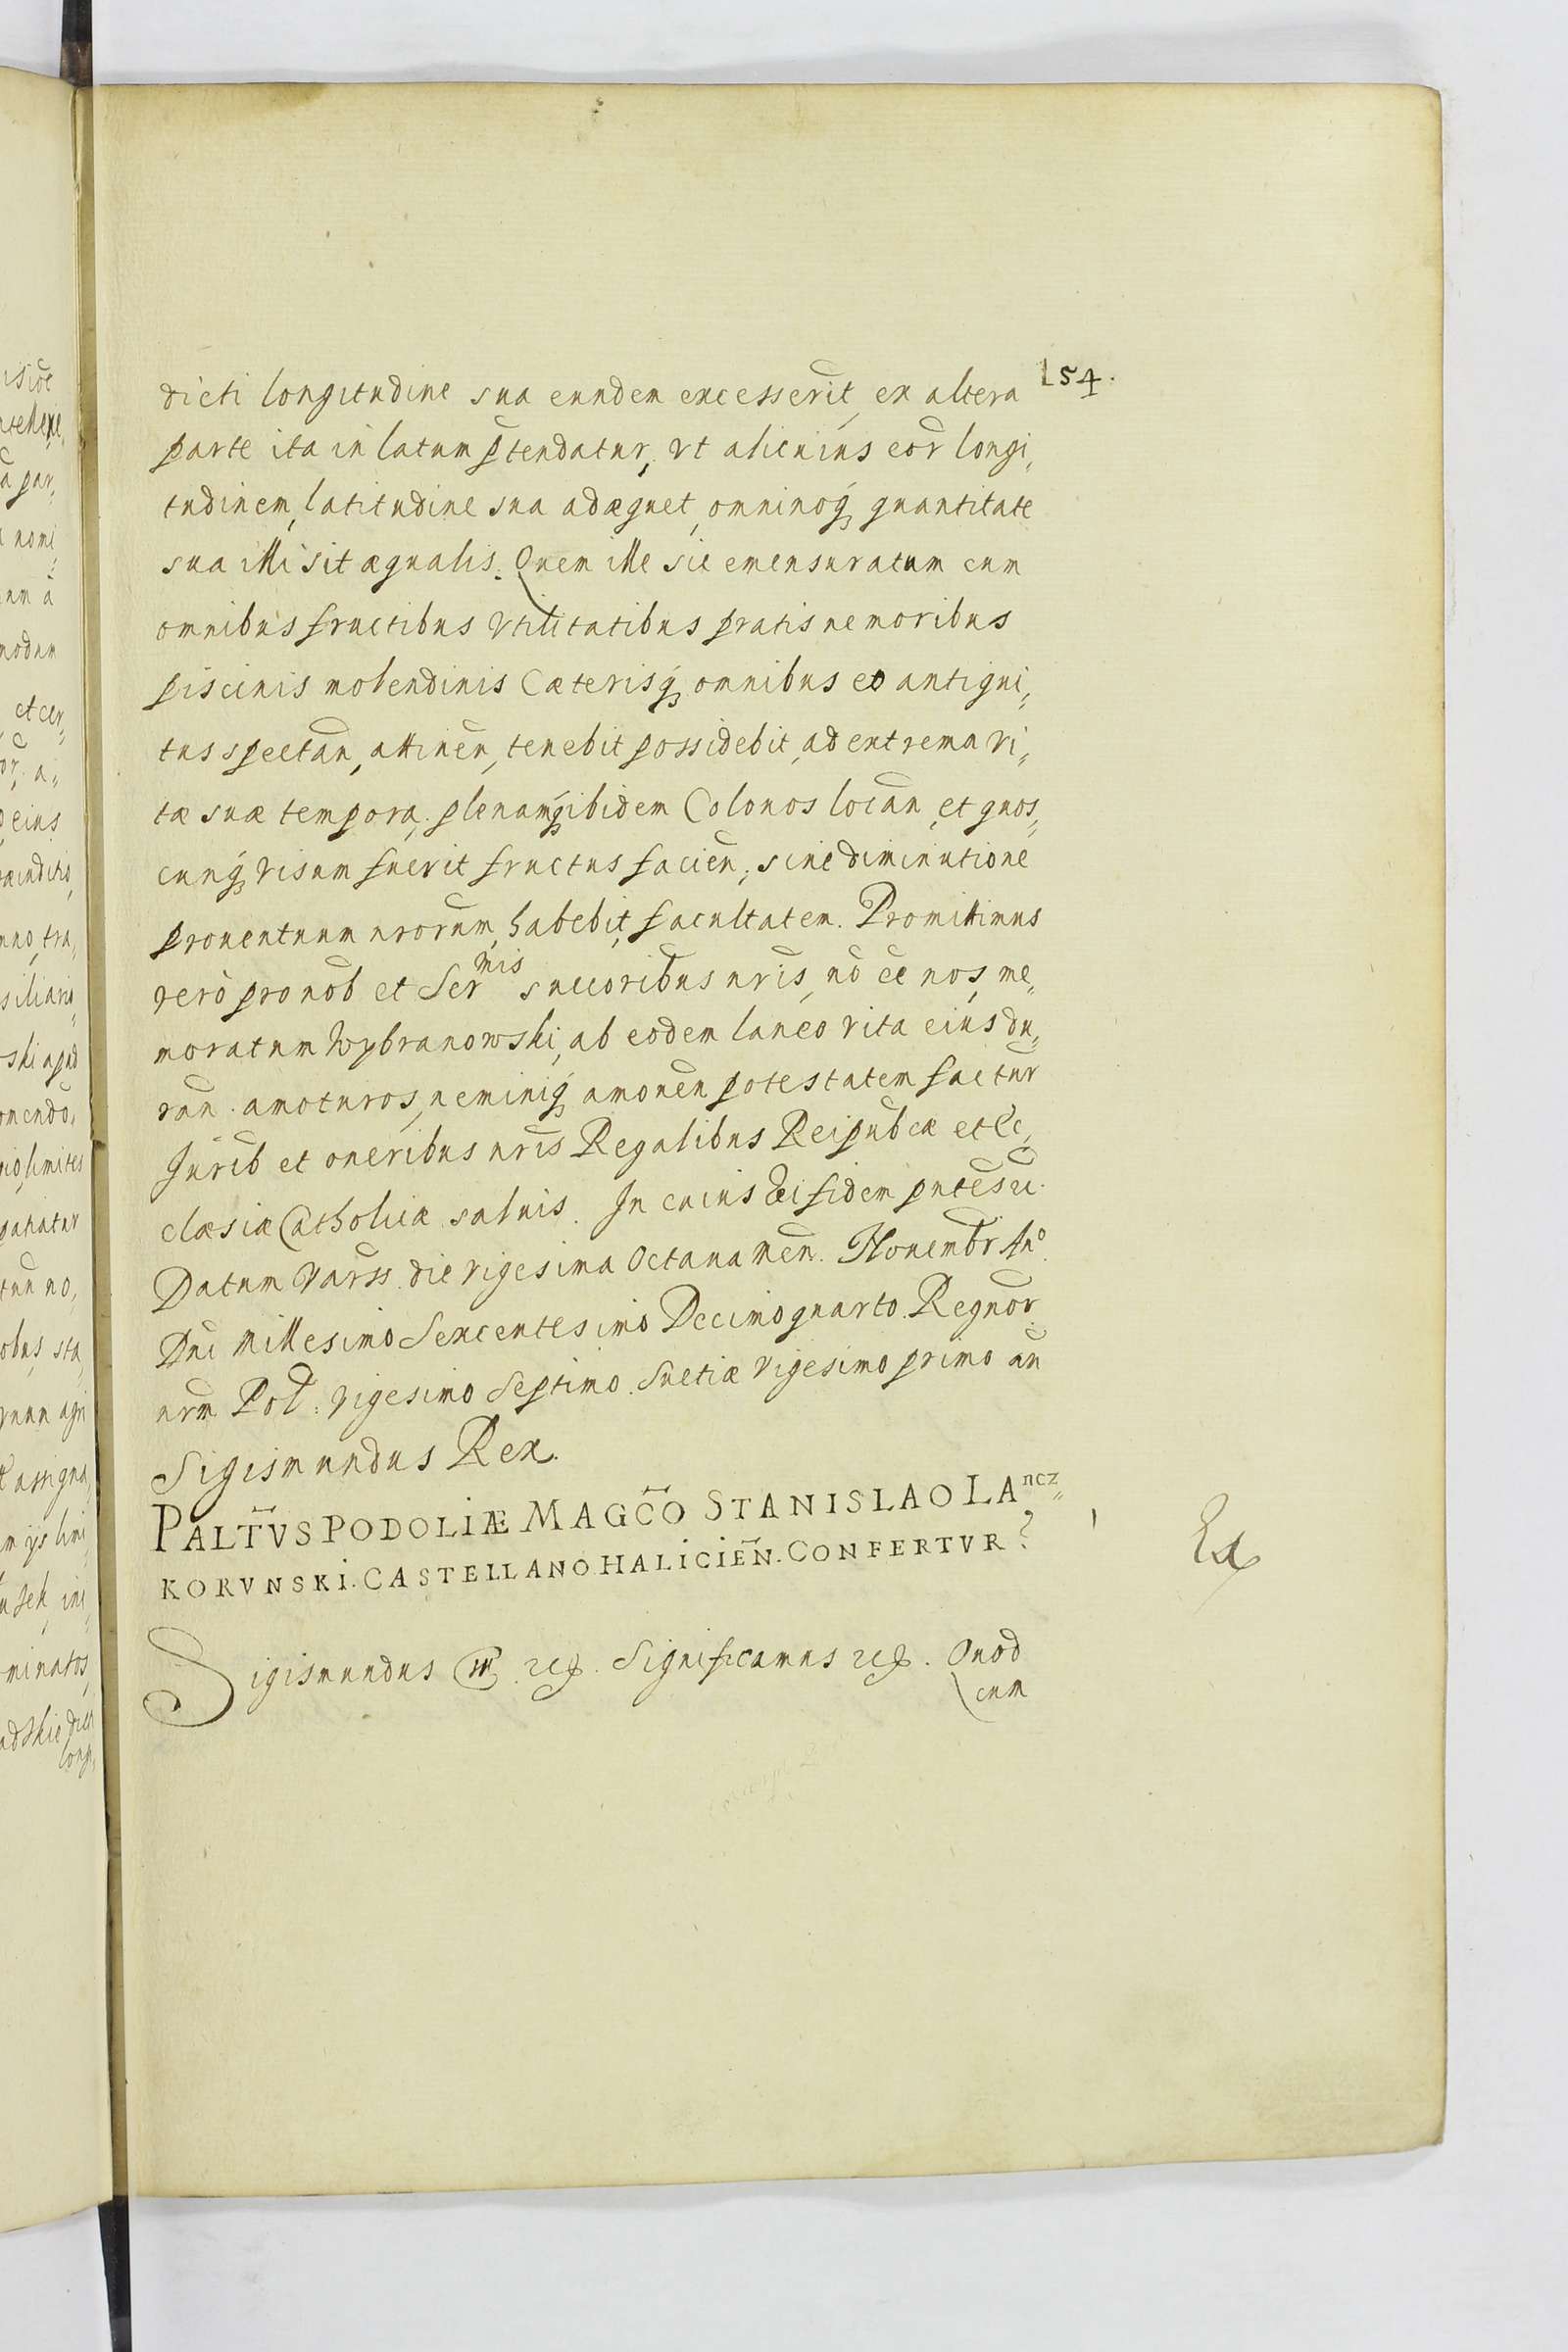 154.
dicti longitudine sua eundem excesserit, ex altera
parte ita in latum ptendatur, vt alicuius eor̃ longi,
tudinem, latitudine sua adæquet, omninoq; quantitate
sua illi sit æqualis. Quem ille sic emensuratum cum
omnibus fructibus vtilitatibus pratis nemoribus
piscinis molendinis Cæterisq; omnibus eo antiqui,
tus spectañ, attineñ, tenebit possidebit, ad extrema vi,
tæ suæ tempora, plenamq; ibidem Colonos locañ, et quos,
cunq; visum fuerit fructus facieñ, sine diminutione
prouentuum nrorum, habebit, facultatem. Promittimus
verò pro nob et Ser nis succoribus nris, nõ eẽ nos, me,
moratum Wybranowski, ab eodem laneo vita eius du,
rañ. amoturos, neminiq; amoueñ potestatem factur
Jurib et oneribus nris Regalibus Reipub cæ et Ec,
clæsiæ Catholicæ saluis. In cuius rei fidem pntes
Datum Varss. die vigesima Octaua Meñ. Nouembr Aº.
Dni Millesimo Sexcentesimo Decimoquarto. Regnor
nrm Pol: vigesimo Septimo. Suetiæ vigesimo primo añ
Sigismundus Rex.
PALTVS PODOLIÆ MAGCO STANISLAO LANCZ,
KORVNSKI. CASTELLANO HALICIEÑ. CONFERTVR
Sigismundus . Significamus . Quod
cum